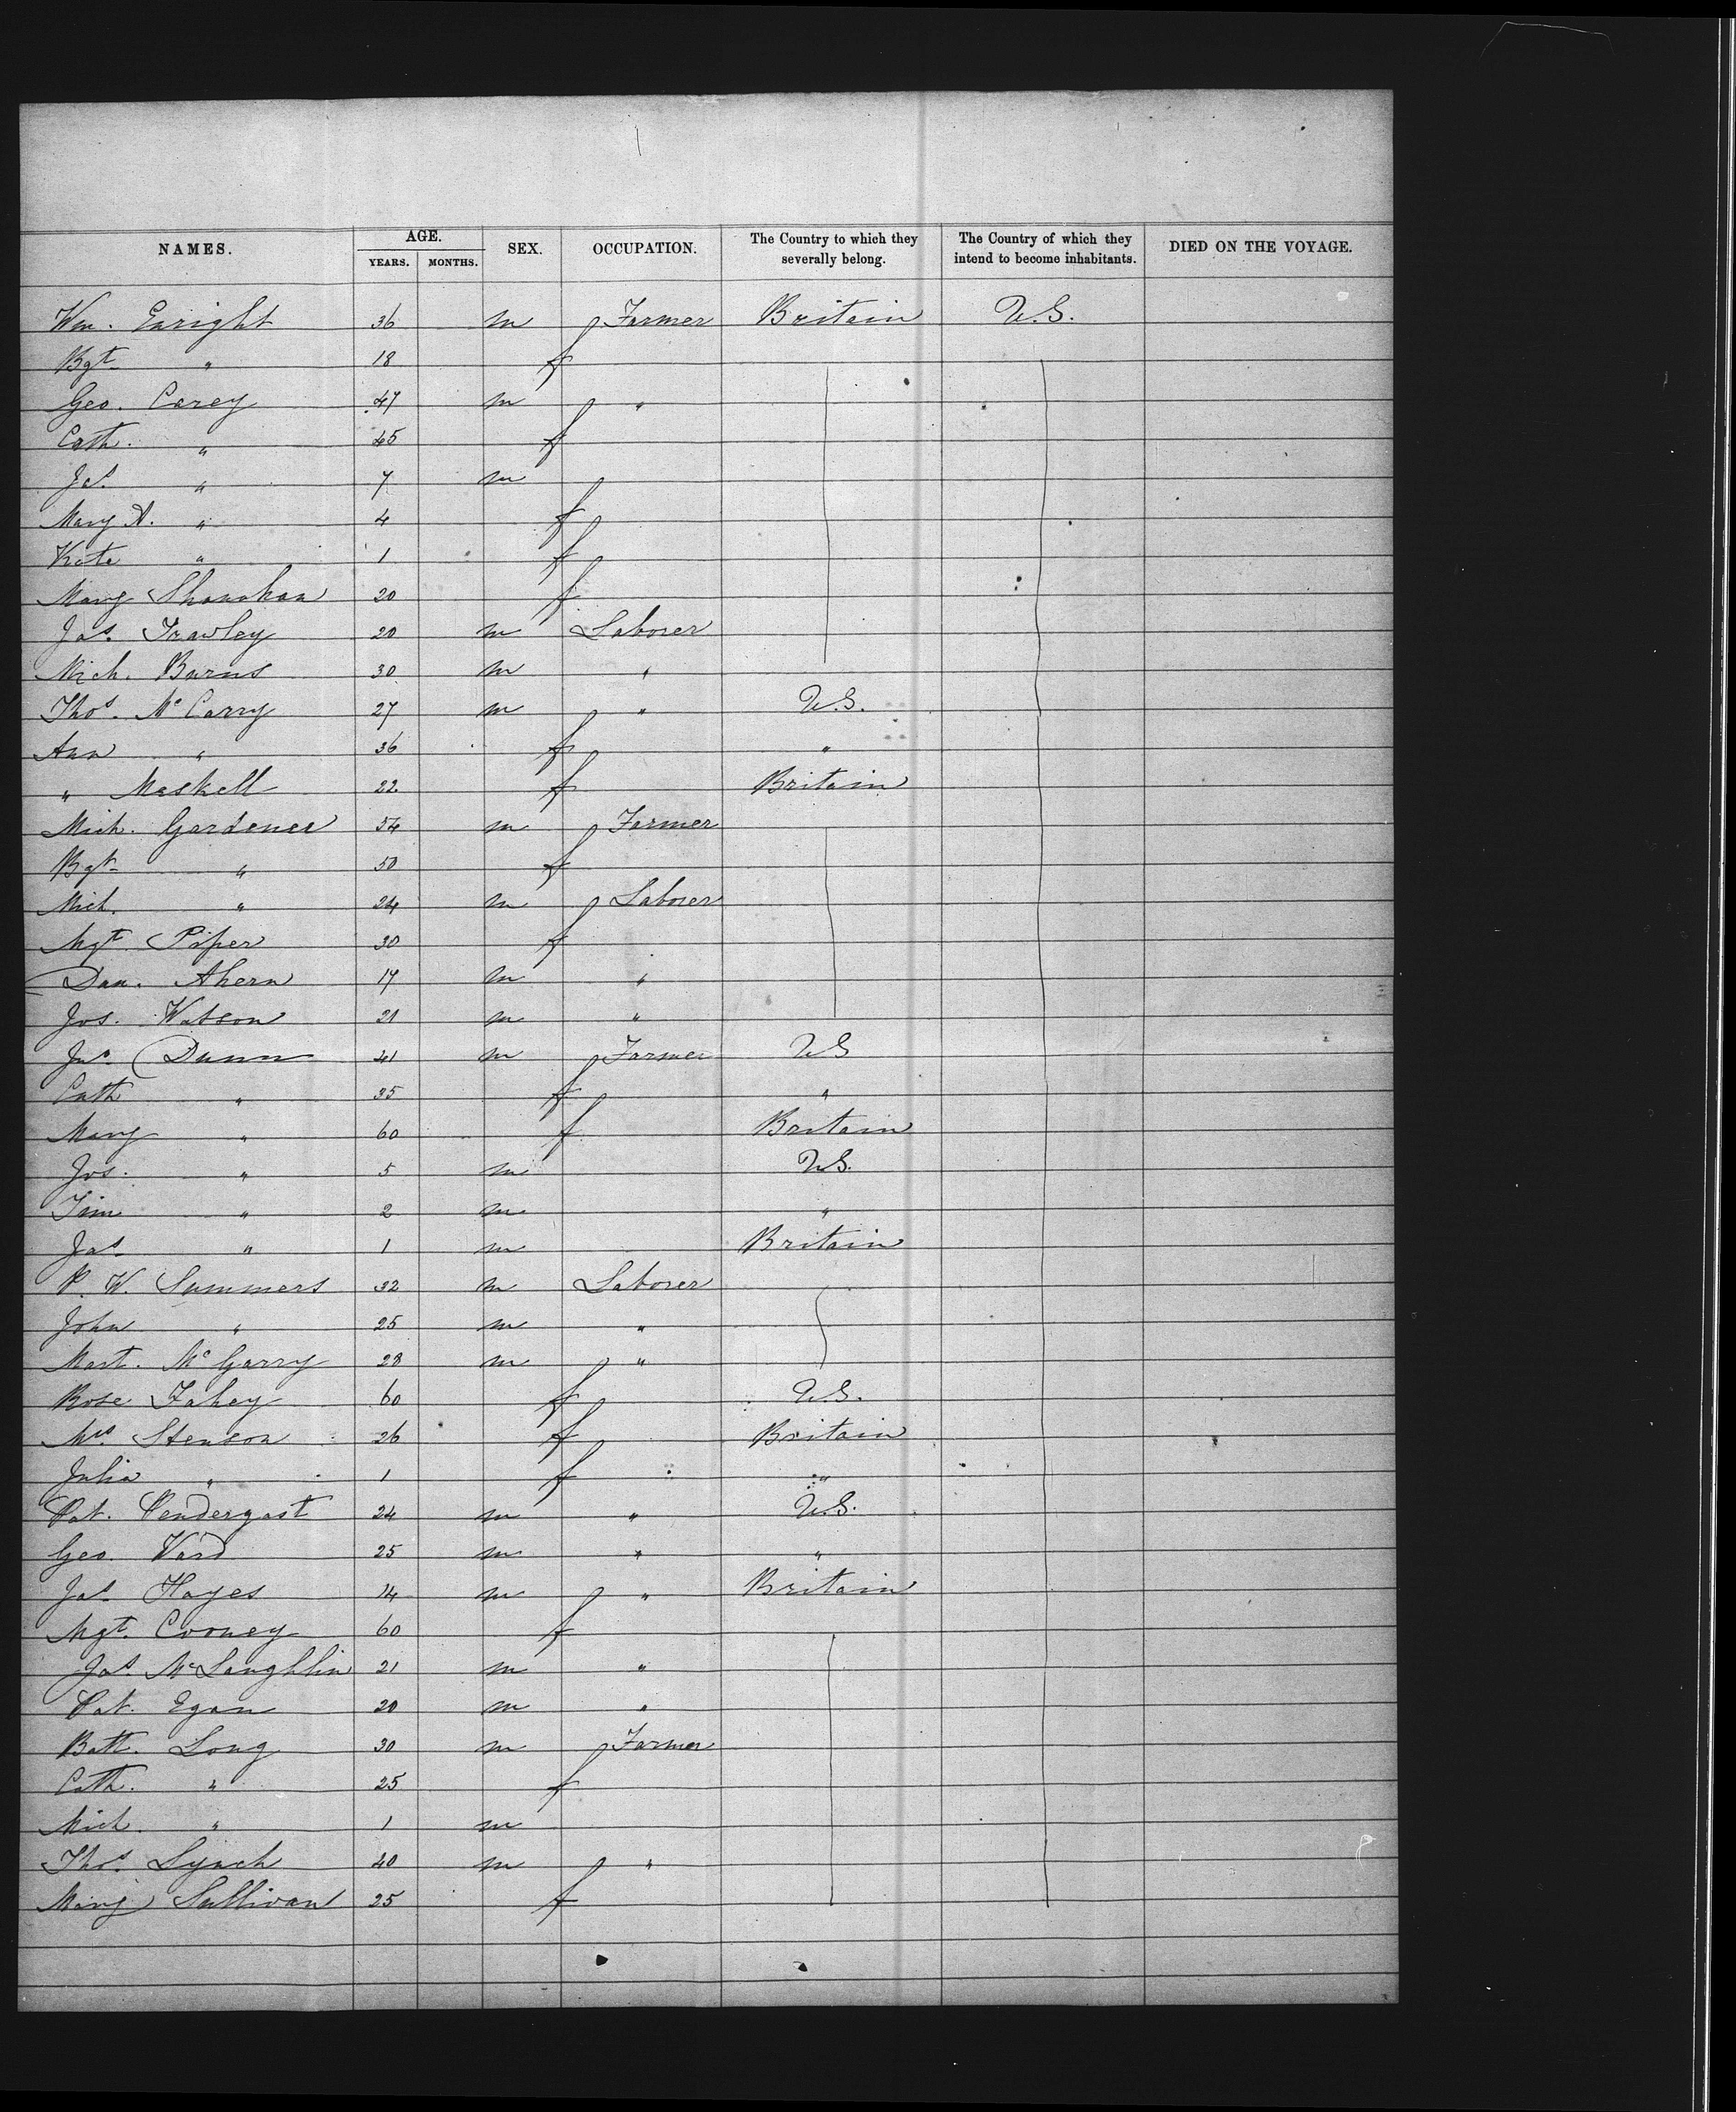 NAMES. AGE. SEX. OCCUPATION. The Country to which they severally belong. The Country of which they intend to become inhabitants. DIED ON THE VOYAGE.
YEARS. MONTHS.
Wm. Enright 36 m Farmer Britain U.S.
Bgt " 18 f
Geo. Carey 47 m "
Cath. " 45 f
Jas " 7 m
Mary A. " 4 f
Kate " 1 f
Mary Shanahan 20 f
Jas. Frawley 20 m Laborer
Mich. Burns 30 m "
Thos. McCarry 27 m " U.S.
Ann " 36 f "
" Maskell 22 f Britain
Mich. Gardener 54 m Farmer
Bgt " 50 f
Mich. " 24 m Laborer
Mgt Piper 30 f
Dan. Ahern 17 m "
Jos. Watson 21 m "
Jas Dunn 41 m Farmer US
Cath " 35 f "
Mary " 60 f Britain
Jos. " 5 m U.S.
Tim " 2 m "
Jas " 1 m Britain
P. W. Summers 32 m Laborer
John " 25 m "
Mart. McGarry 28 m "
Rose Fahey 60 f U.S.
Mrs Stenson 26 f Britain
Julia " 1 f "
Pat. Pendergast 24 m " U.S.
Geo. Ward 25 m " "
Jas Hayes 14 m " Britain
Mgt. Cooney 60 f
Jas McLaughlin 21 m "
Pat. Egan 20 m "
Batt. Long 30 m Farmer
Cath. " 25 f
Mich. " 1 m
Thos. Lynch 40 m "
Mary Sullivan 25 f